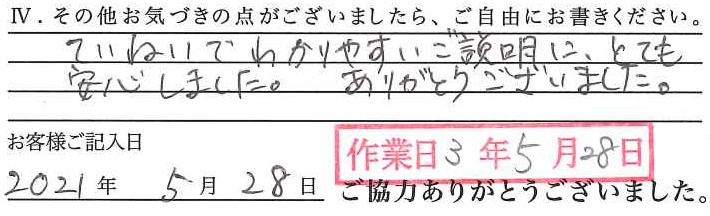 Ⅳ．その他お気づきの点がございましたら、ご自由にお書きください。
ていねいでわかりやすいご説明に、とても
安心しました。 ありがとうございました。
お客様ご記入日
作業日3年5月28日
2021年 5月 28日 ご協力ありがとうございました。